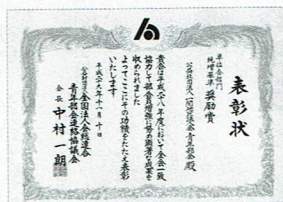 表彰状
単位会部門
純増基準 奨励賞
公益社団法人 一関地方法人会青年部会殿
貴会は平成二十八年度において全会一致
協力して部会員増強に努め顕著な成果を
収められました
よってここにその功績をたたえ表彰
いたします
平成二十九年十一月十日
公益財団法人 全国法人会総連合
青年部会連絡協議会
会長 中村一朗